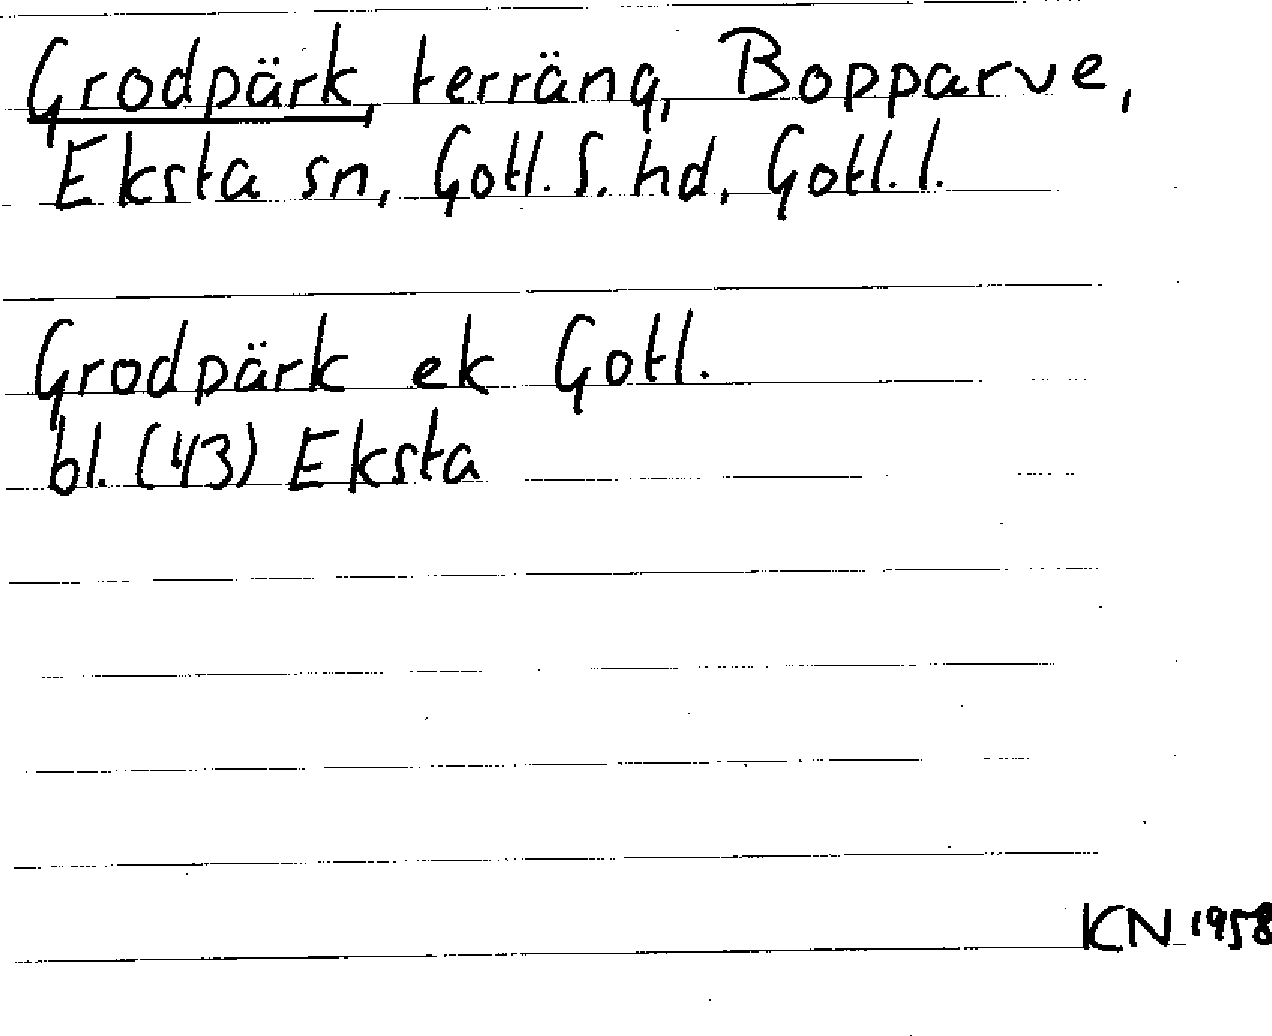 Grodpärk, terräng, Bopparve,
Eksta sn, Gotl. S. hd, Gotl. l.
Grodpärk ek Gotl.
bl. (43) Eksta
KN 1958